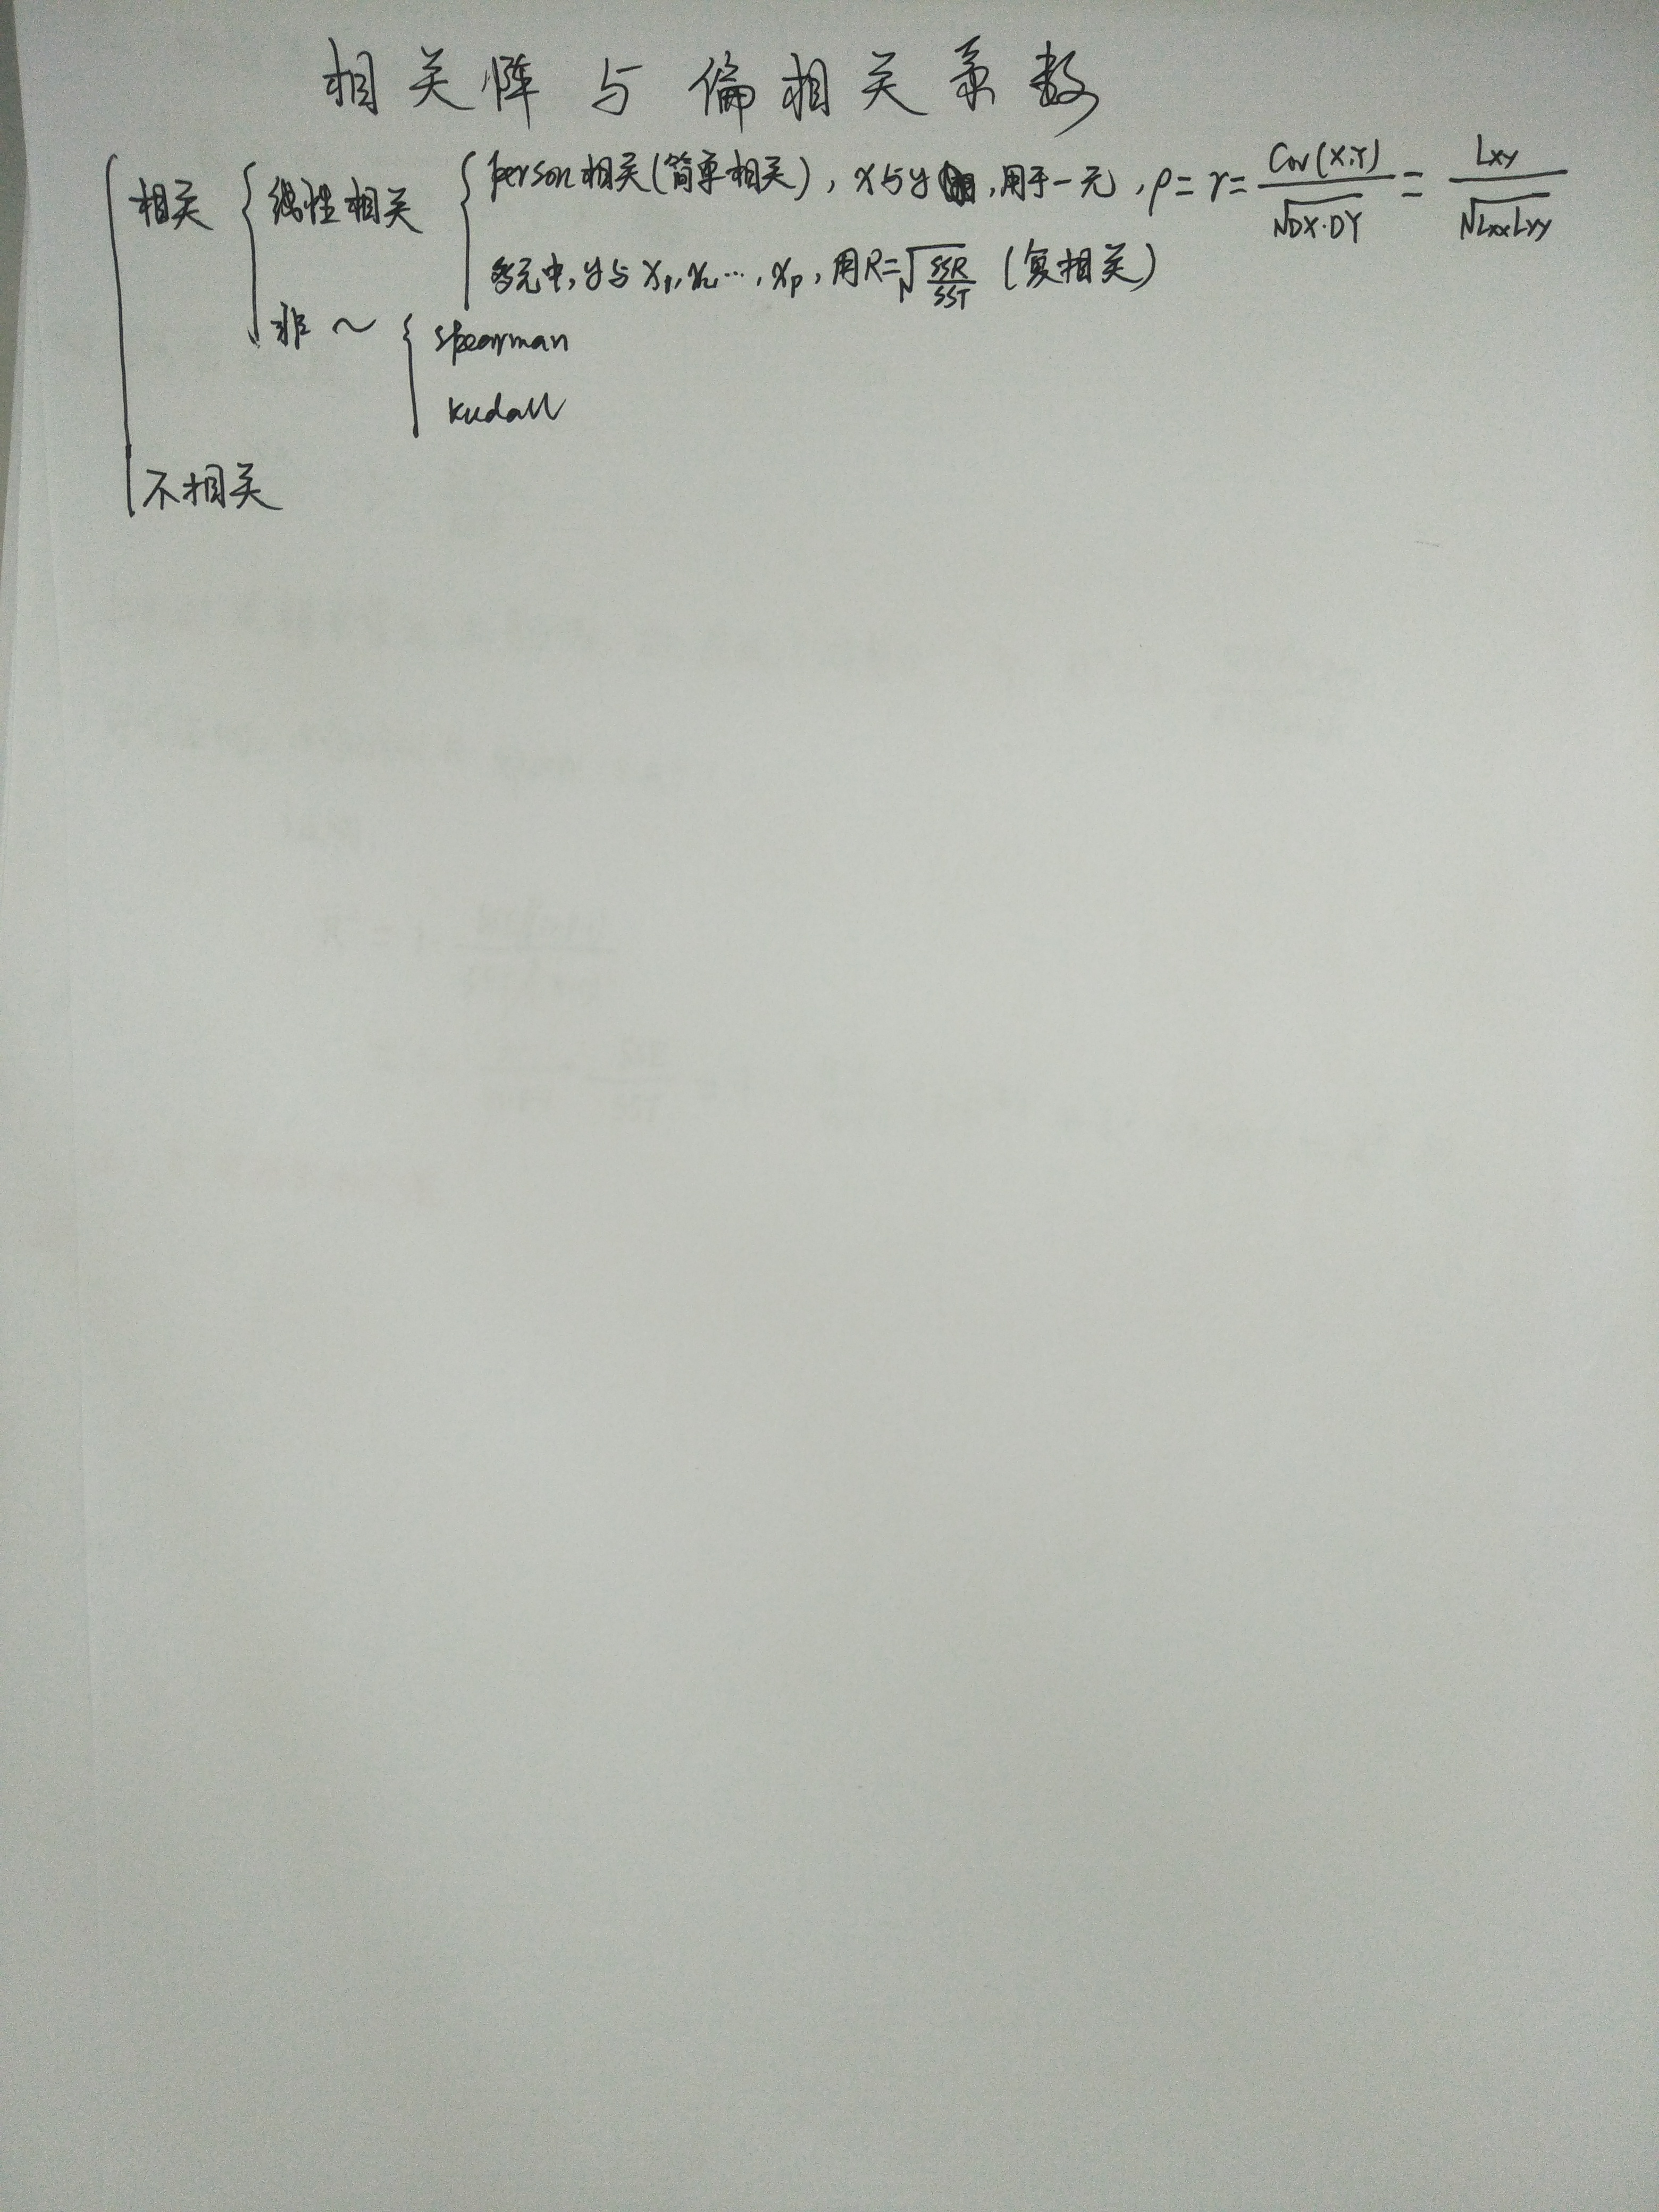 相关阵与偏相关系数
相关 { 线性相关 { person相关(简单相关), x与y, 用于一元, ρ=r=Cov(X,Y)/√DX·DY = Lxy/√LxxLyy
多元中, y与x₁, x₂, …, xp, 用R=√SSR/SST (复相关)
非~ { spearman
kudall
不相关